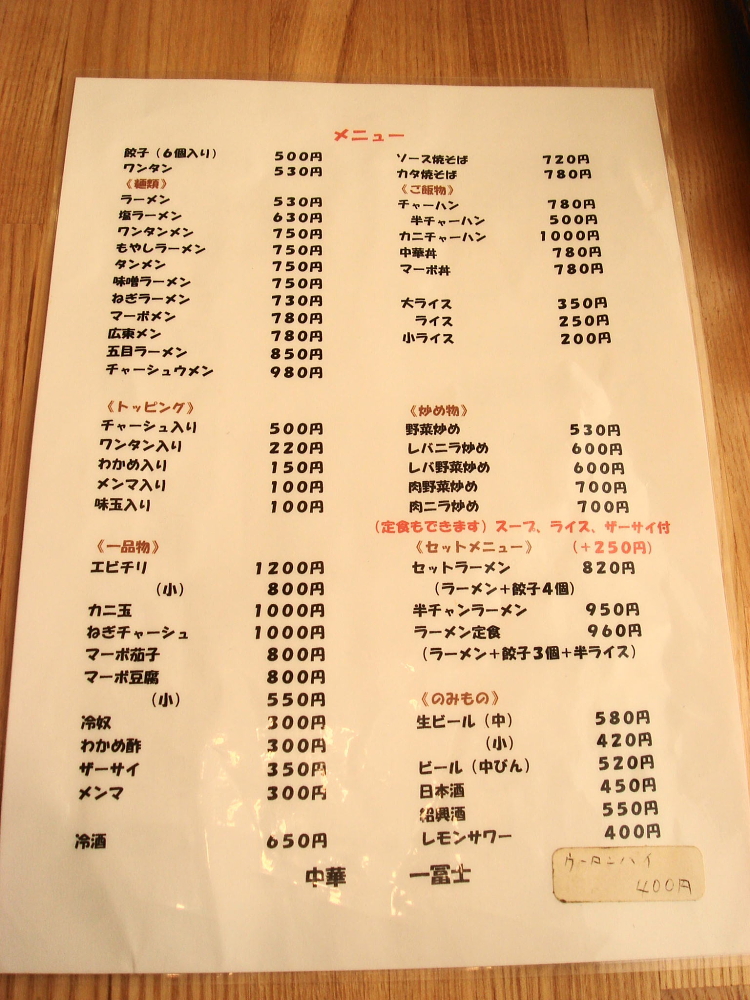 メニュー
餃子（6個入り） 500円
ワンタン 530円
《麺類》
ラーメン 530円
塩ラーメン 630円
ワンタンメン 750円
もやしラーメン 750円
タンメン 750円
味噌ラーメン 750円
ねぎラーメン 730円
マーボメン 780円
広東メン 780円
五目ラーメン 850円
チャーシュウメン 980円
《トッピング》
チャーシュ入り 500円
ワンタン入り 220円
わかめ入り 150円
メンマ入り 100円
味玉入り 100円
《一品物》
エビチリ 1200円
（小） 800円
カニ玉 1000円
ねぎチャーシュ 1000円
マーボ茄子 800円
マーボ豆腐 800円
（小） 550円
冷奴 300円
わかめ酢 300円
ザーサイ 350円
メンマ 300円
冷酒 650円
ソース焼そば 720円
カタ焼そば 780円
《ご飯物》
チャーハン 780円
半チャーハン 500円
カニチャーハン 1000円
中華丼 780円
マーボ丼 780円
大ライス 350円
ライス 250円
小ライス 200円
《炒め物》
野菜炒め 530円
レバニラ炒め 600円
レバ野菜炒め 600円
肉野菜炒め 700円
肉ニラ炒め 700円
（定食もできます）スープ、ライス、ザーサイ付
《セットメニュー》 （＋250円）
セットラーメン 820円
（ラーメン＋餃子4個）
半チャンラーメン 950円
ラーメン定食 960円
（ラーメン＋餃子3個＋半ライス）
《のみもの》
生ビール（中） 580円
（小） 420円
ビール（中びん） 520円
日本酒 450円
紹興酒 550円
レモンサワー 400円
ウーロンハイ
400円
中華 一冨士